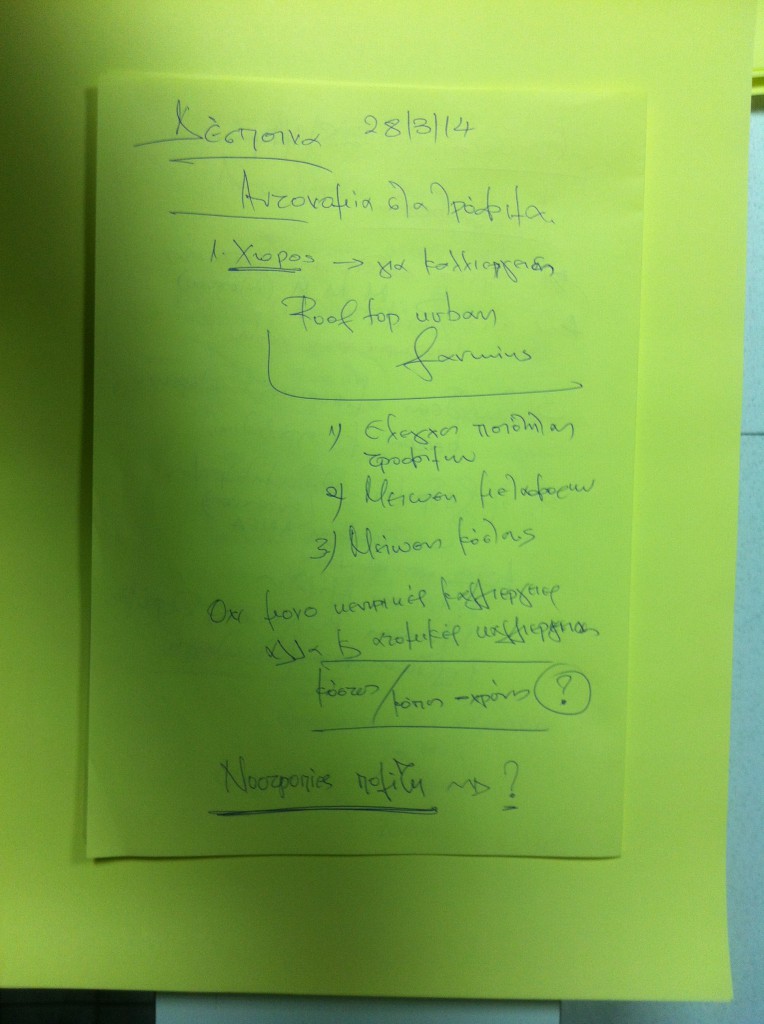 Δέσποινα 28/3/14
Αυτονομία στα Τρόφιμα.
1. Χωρος → για καλλιεργειες
Roof top urban
farming
1) Ελεγχοι ποιότητας
τροφίμων
2) Μειωση μεταφορων
3) Μείωση κόστους
Οχι μονο κεντρικές καλλιεργειες
αλλα & ατομικές καλλιεργειες
κόστος/κόπος - χρόνος ?
Νοοτροπίες πολίτη → ?